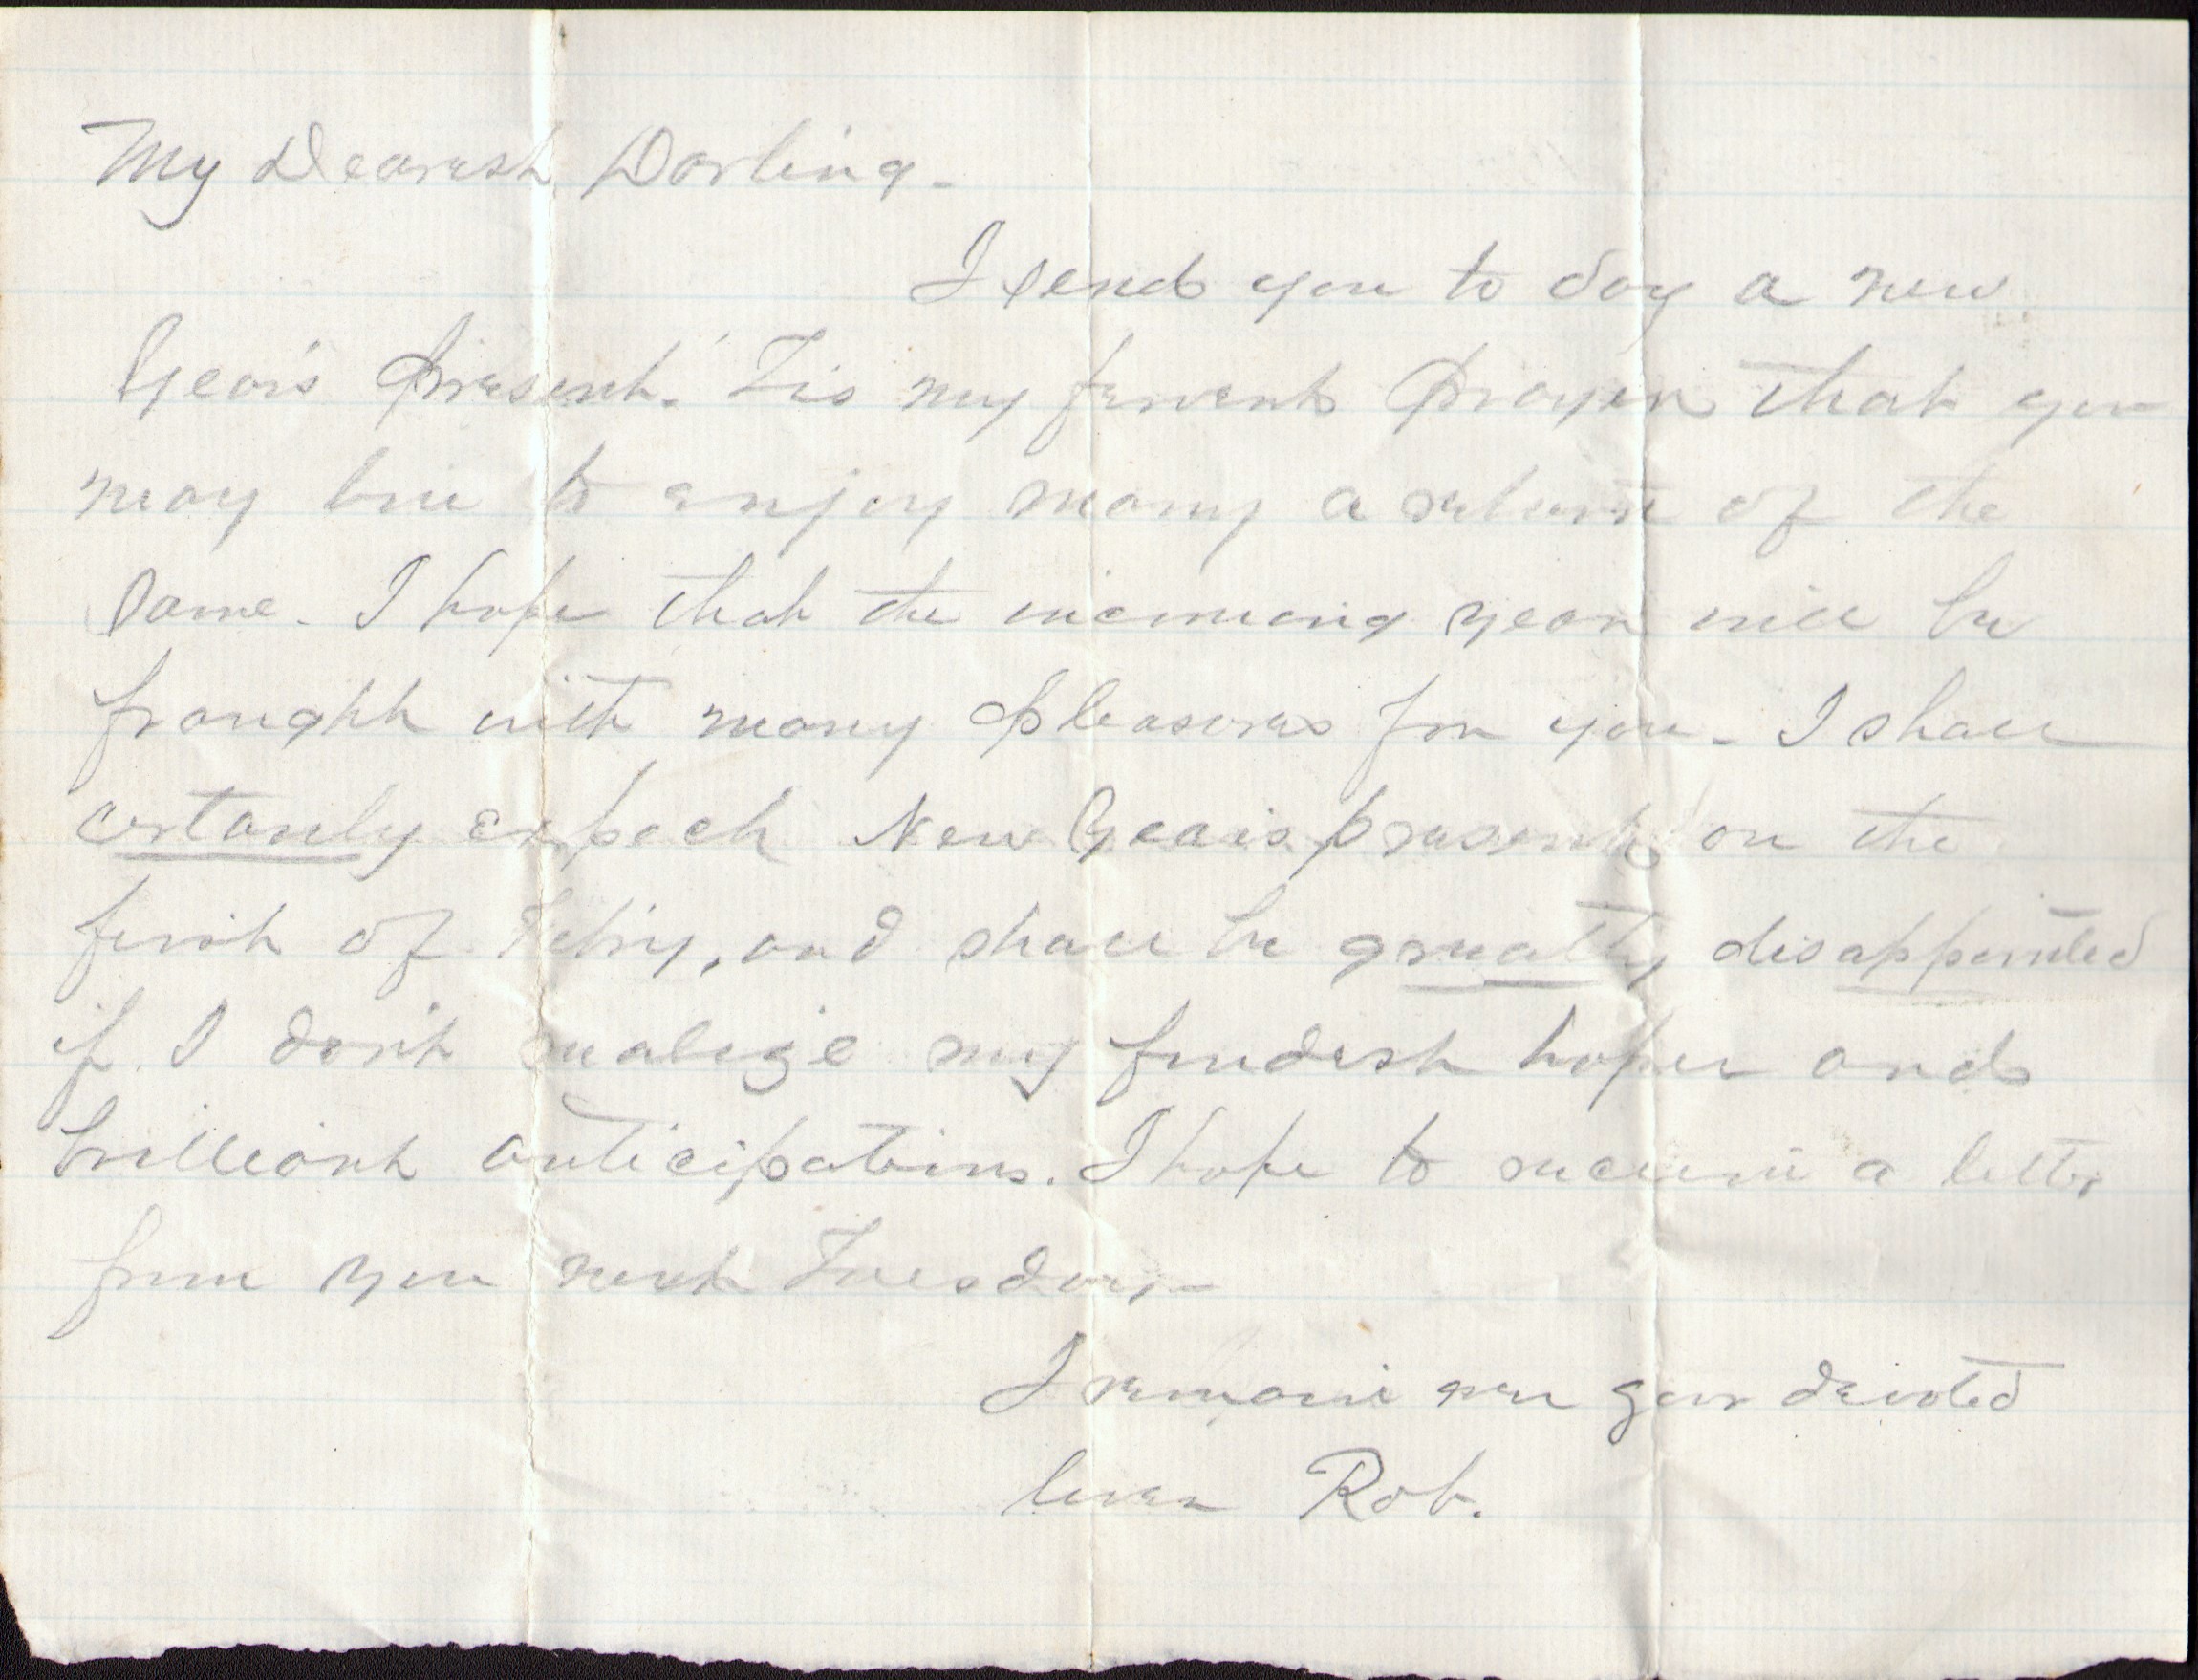 My Dearest Darling-
I send you to day a new
Year's Present. Tis my fervent Prayer that you
may live to enjoy many a return of the
Same. I hope that the incoming year will be
fraught with many Pleasures for you- I shall
certanly expect New Years present on the
first of Febry, and shall be greatly disappointed
if I don't realize my fondest hopes and
brilliant anticipations. I hope to receive a letter
from you next Tuesday-
I remain ever your devoted
lover Rob.